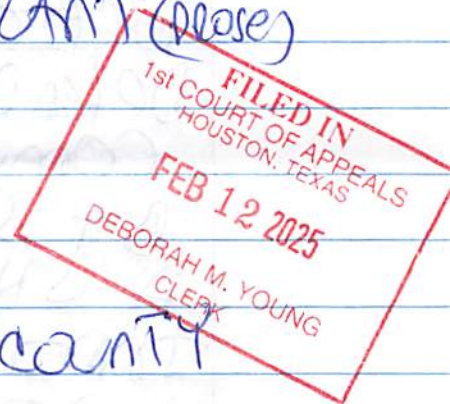 (prose)
FILED IN
1st COURT OF APPEALS
HOUSTON, TEXAS
FEB 12 2025
DEBORAH M. YOUNG
CLERK
COUNTY